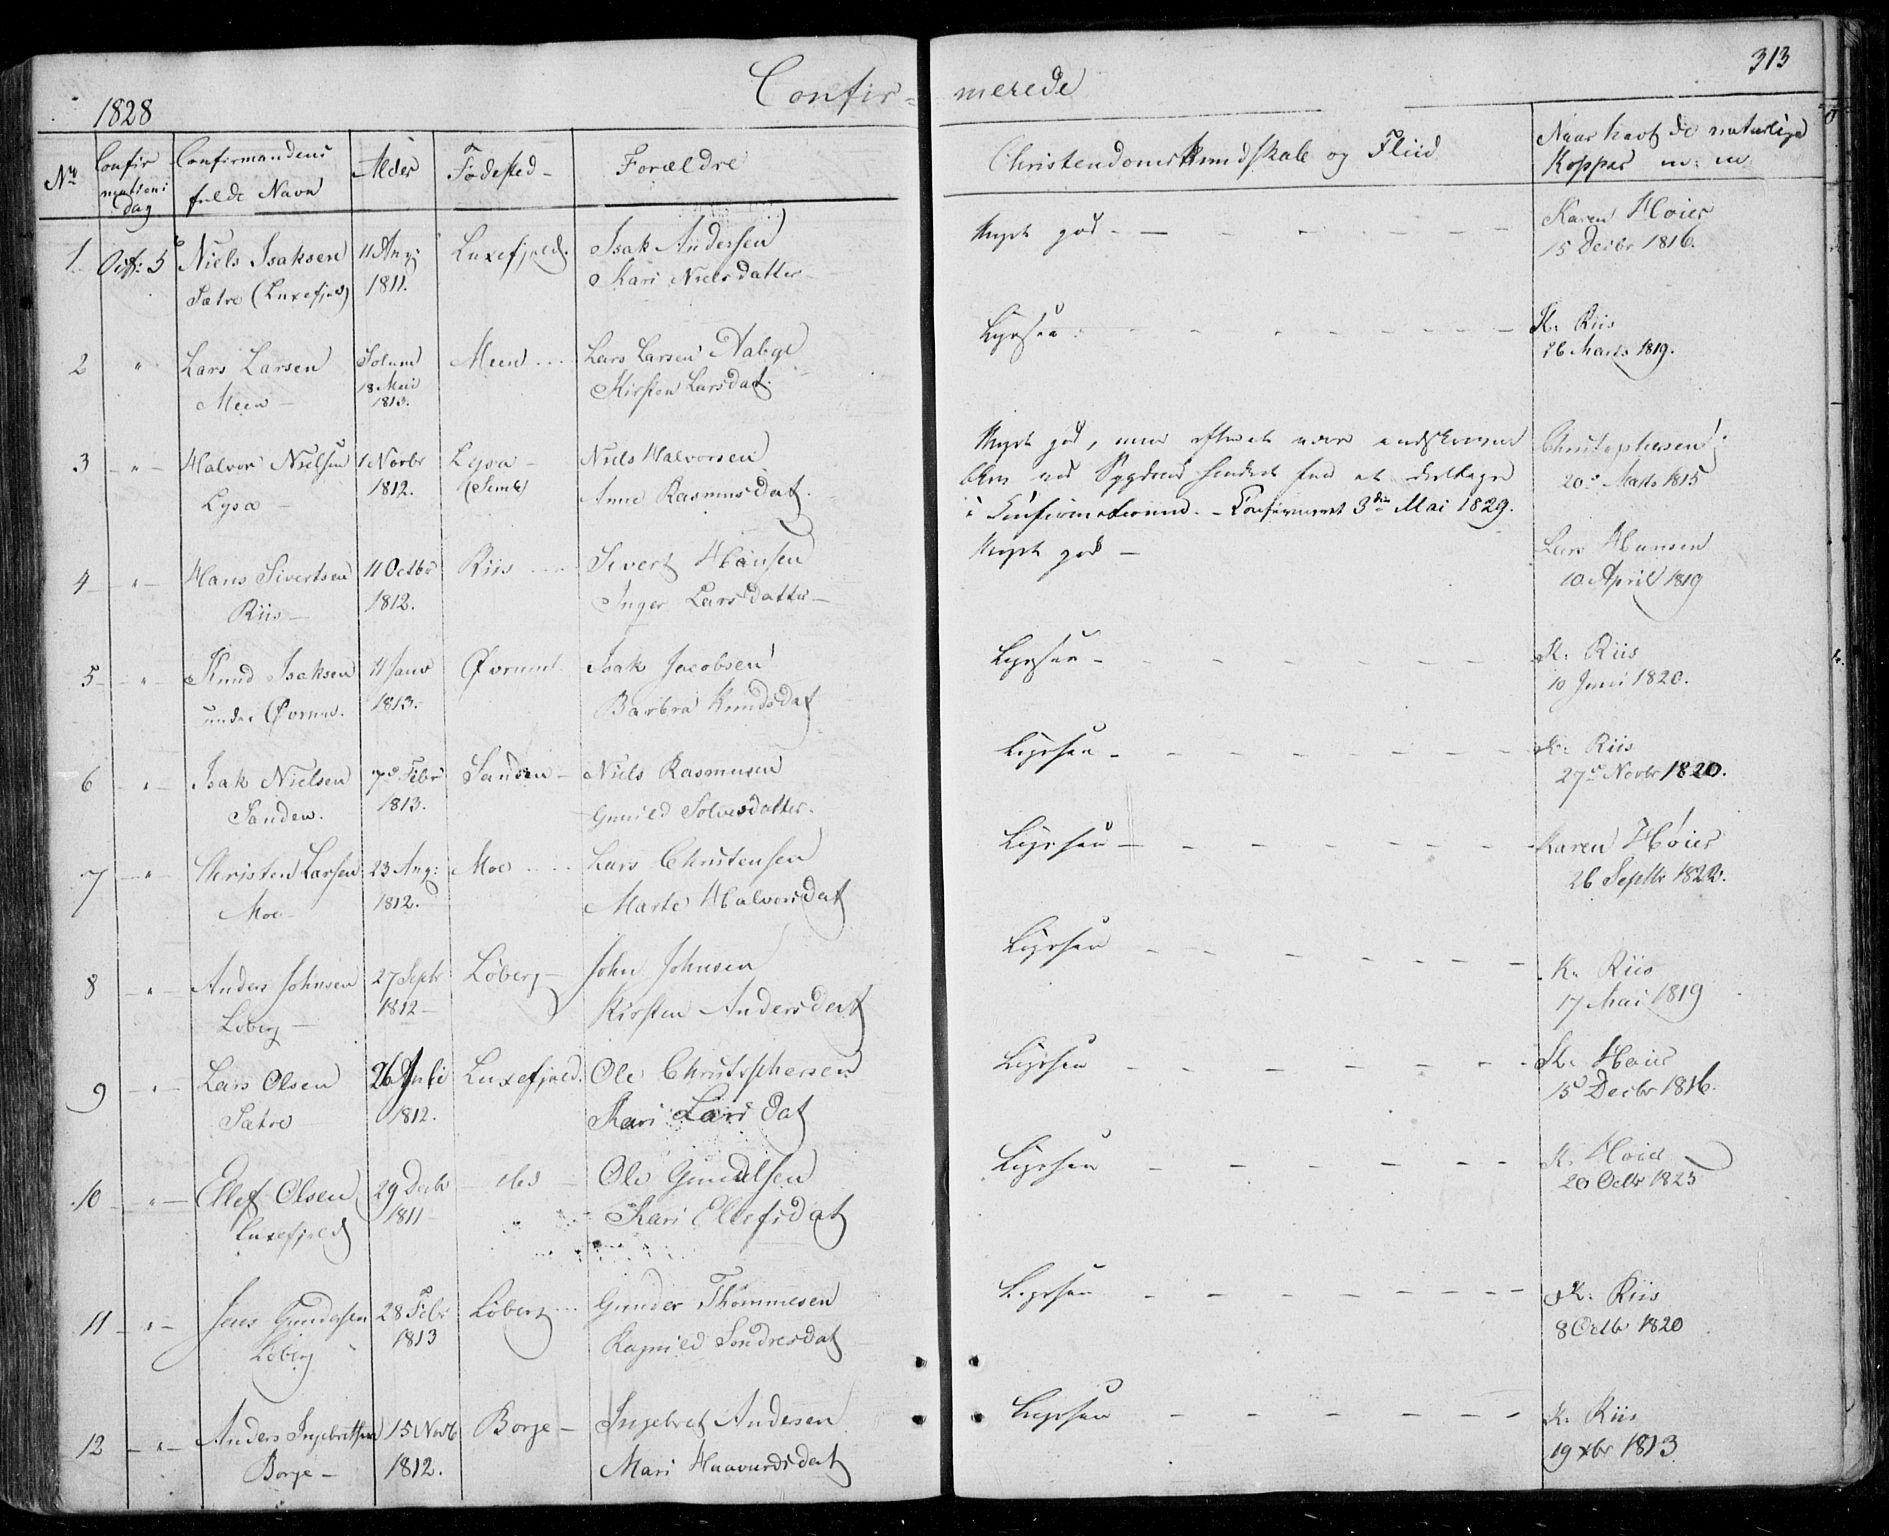 313
1828
Confir-
merede
No
Confirmations dag
Confirmandens fulde Navn
Alder
Fødested
Forældre
Christendomskundskab og Fliid
Naar havt de naturlige Kopper m: m:
1. Octb: 5 Niels Isaksen 11 Aug: Luxefjeld. Isak Andersen Meget god Karen Høier
Sætre (Luxefjeld) 1811. Kari Nielsdatter 15 Decbr 1816.
2 " Lars Larsen Solum Meen Lars Larsen Ligesaa K: Riis
Meen 18 Mai 1813. Kirsten Larsdat. 26 Marts 1819.
3 " Halvor Nielsen 1 Novbr Lysa Niels Halvorsen Meget god, men efterat være indskreven Christophersen
Lysa 1812. Anne Rasmusdat. blev ved Sygdom hindret fra at deeltage 20 Marts 1815
i Confirmationen. - Confirmeret 3die Mai 1829.
4 " Hans Sivertsen 11 Octbr Riis Sivert Hansen Meget god Lars Hansen
Riis 1812. Inger Larsdatter 10 April 1819
5 " Knud Isaksen 11 Janv Øvrum Isak Jacobsen Ligesaa K: Riis
under Øvrum. 1813. Barbra Knudsdat 10 Juni 1820.
6 " Isak Nielsen 7de Febr Sanden Niels Rasmusen Ligesaa K: Riis
Sanden. 1813. Gunild Solvesdatter. 27de Novbr 1820.
7 " Christen Larsen 23 Aug: Moe Lars Christensen Ligesaa Karen Høier
Moe 1812. Marte Halvorsdat 26 Septbr
8 " Anders Johnsen 27 Septr Løberg John Johnsen Ligesaa K: Riis
Løberg 1812 Kirsten Andersdat 17 Mai 1819
9 " Lars Olsen 26 Juli Luxefjeld. Ole Christophersen Ligesaa K: Høier
Sætre 1812. Kari Larsdat 15 Decbr 1816.
10 " Ellef Olsen 29 Decbr Ole Gundersen Ligesaa K. Høier
Luxefjeld 1811 Kari Ellefsdat 20 Octbr 1825
11 " Jens Gundersen 28 Febr Løberg Gunder Thommesen Ligesaa K: Riis
Løberg 1813 Ragnild Sondresdat 8 Octbr 1820
12 " Anders Ingebretsen 15 Novb Borge Ingebret Andersen Ligesaa K: Riis
Borge 1812. Mari Haavardsdat 19 xbr 1813.